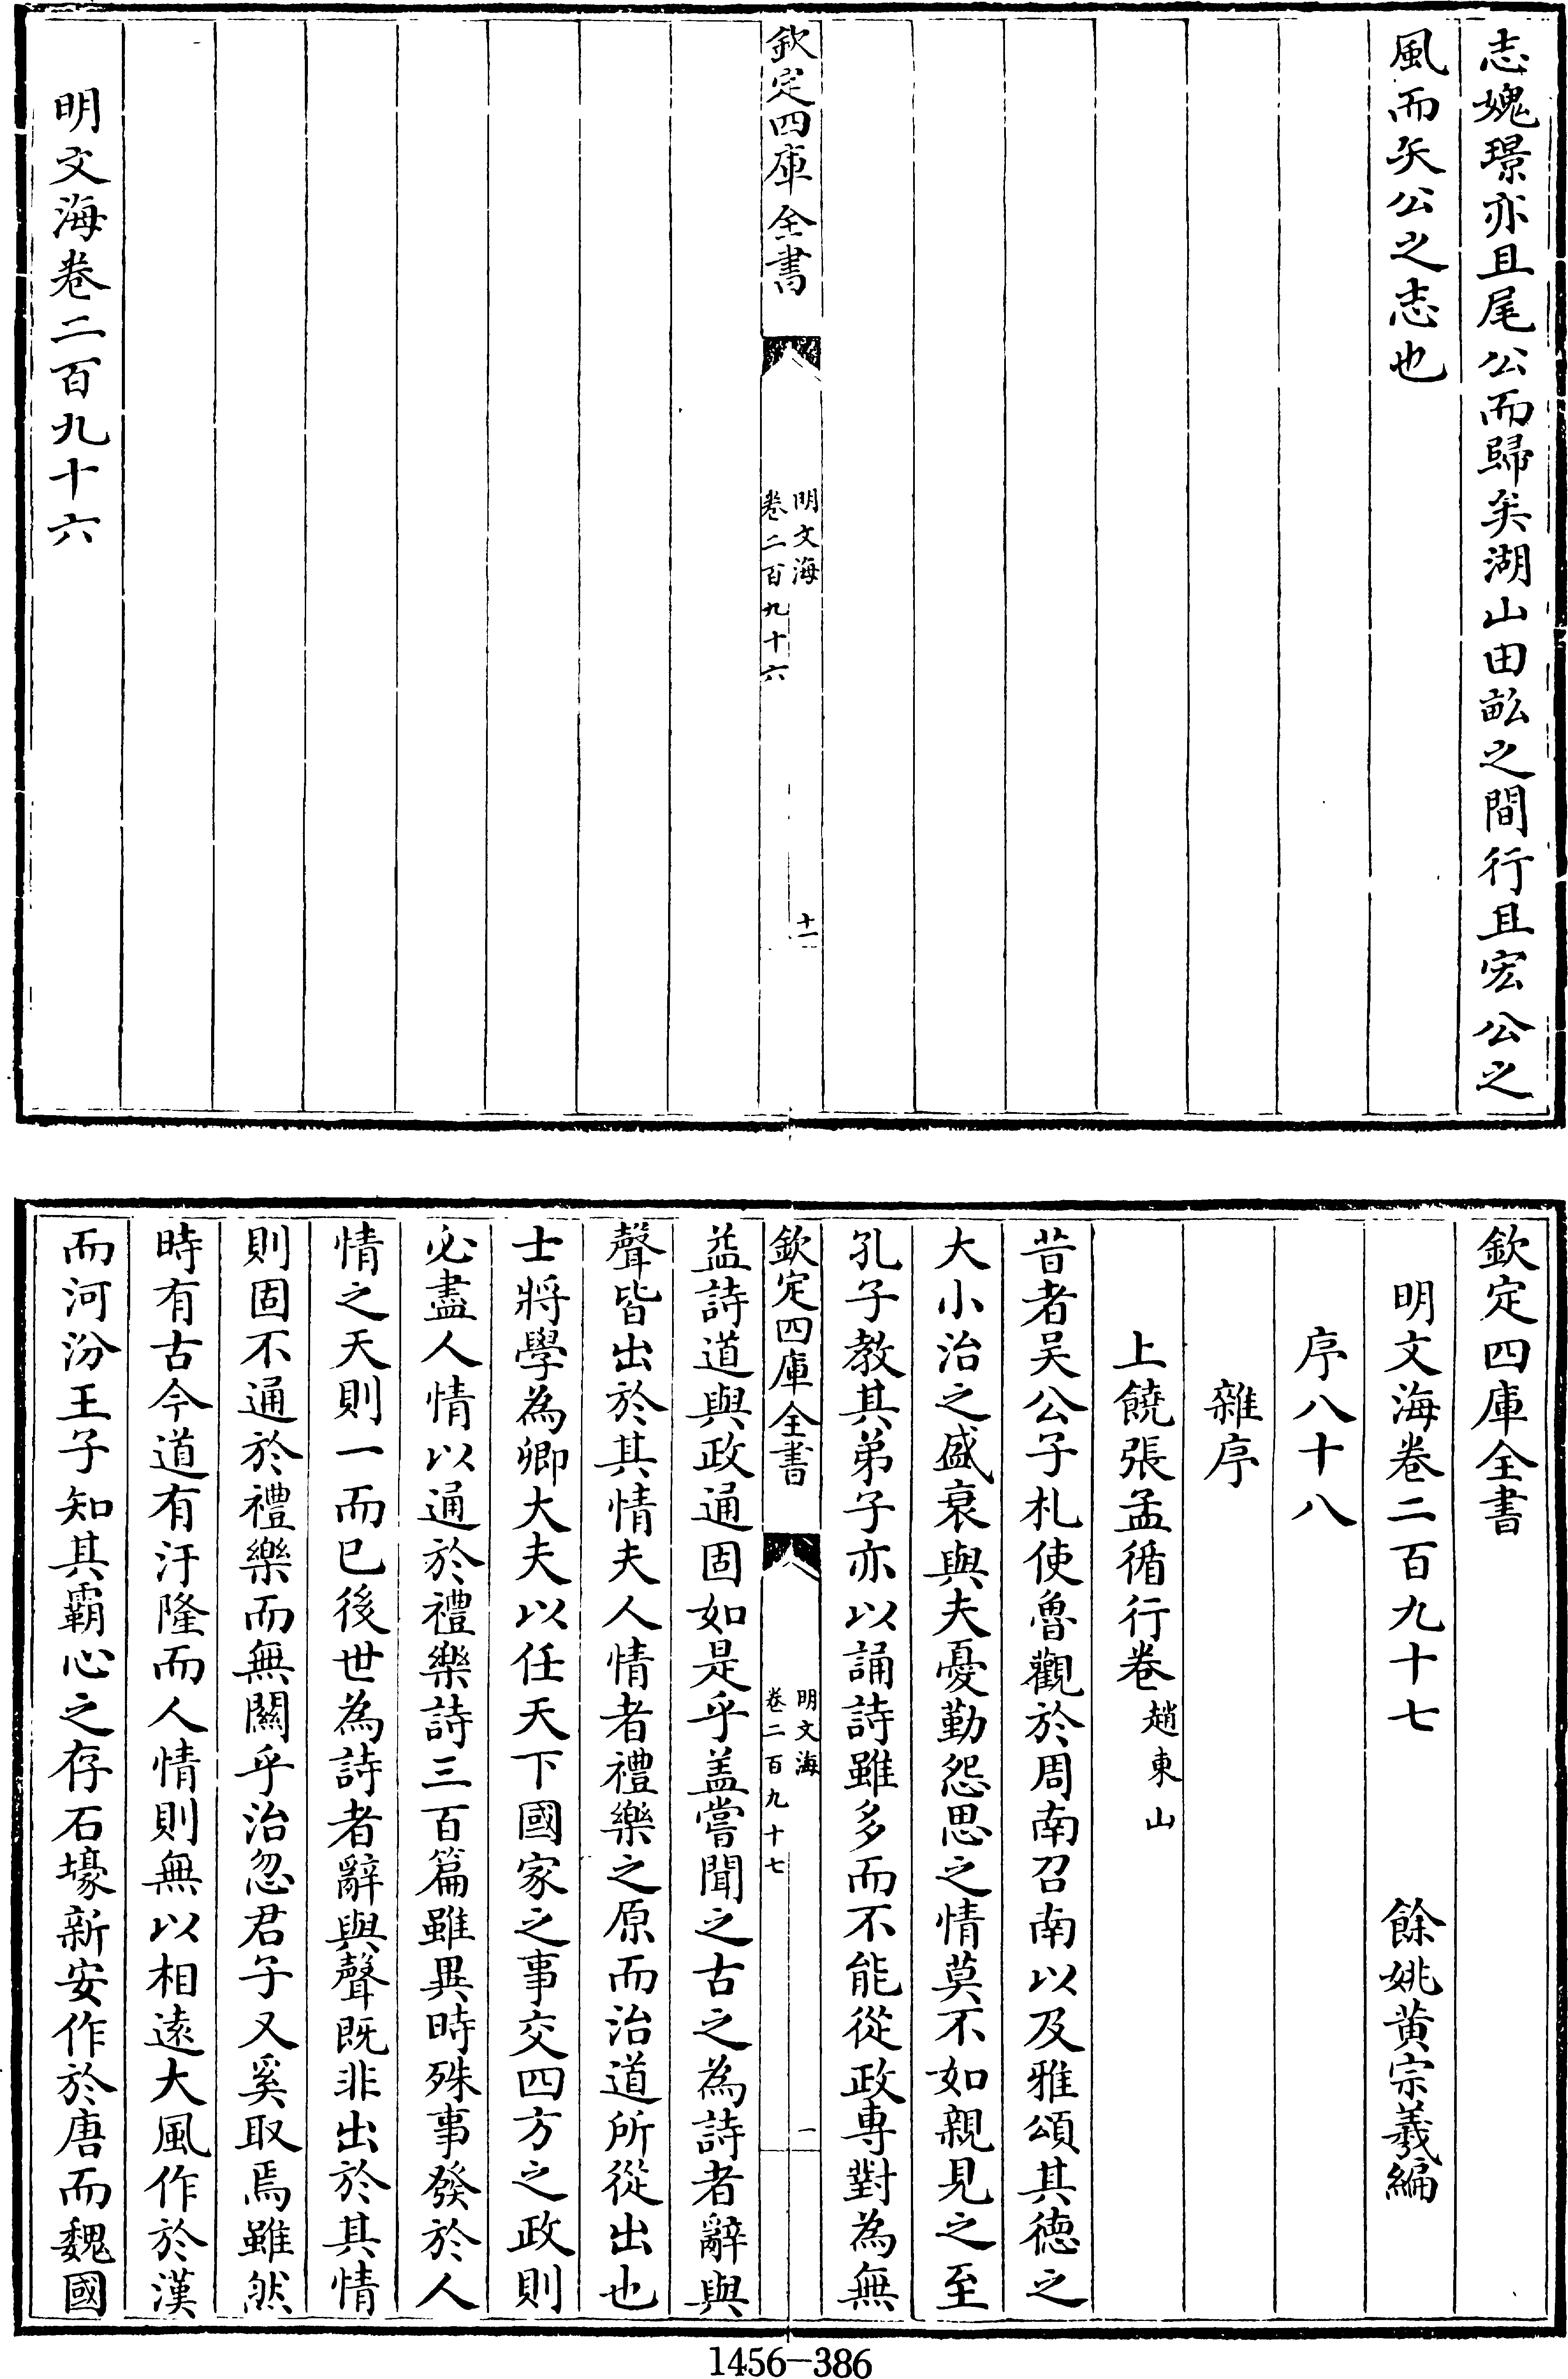 志媿璟亦且尾公而歸矣湖山田畆之間行且宏公之
風而矢公之志也
欽定四庫全書
明文海
卷二百九十六
十一
明文海卷二百九十六
欽定四庫全書
明文海卷二百九十七 餘姚黃宗羲編
序八十八
雜序
上饒張孟循行卷趙東山
昔者吴公子札使魯觀於周南召南以及雅頌其德之
大小治之盛衰與夫憂勤怨思之情莫不如親見之至
孔子教其弟子亦以誦詩雖多而不能從政專對為無
欽定四庫全書
明文海
卷二百九十七
一
益詩道與政通固如是乎盖嘗聞之古之為詩者辭與
聲皆出於其情夫人情者禮樂之原而治道所從出也
士將學為卿大夫以任天下國家之事交四方之政則
必盡人情以通於禮樂詩三百篇雖異時殊事發於人
情之天則一而已後世為詩者辭與聲既非出於其情
則固不通於禮樂而無關乎治忽君子又奚取焉雖然
時有古今道有汙隆而人情則無以相遠大風作於漢
而河汾王子知其霸心之存石壕新安作於唐而魏國
1456-386